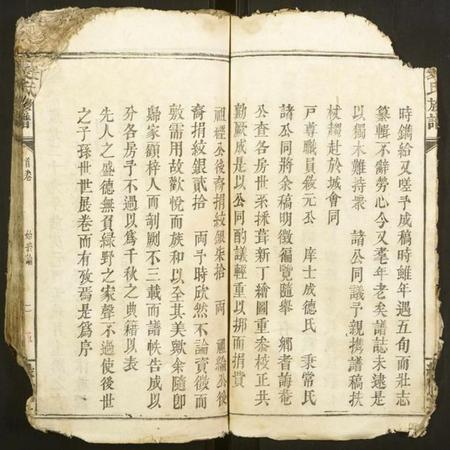 時鐫給又嗟予成稿時雖年遇五旬而壯志
纂輯不辭勞心今又耄年老矣譜誌未遂是
以獨木難持衆 諸公同議予親携譜稿扶
杖趨赴於城會同
戶尊職員敘元公 庠士成德氏 秉常氏
諸公同將余稿明徵編覽隨舉 鄉耆誨菴
公查各房世系揉葺新丁繪圖重叅校正共
勷厥成是以公同酌議輕重以挪而捐貲
祖禮公後裔捐紋銀柒拾 兩 祖 公後
裔捐紋銀貳拾 兩予時欣然不論資微而
敷需用故歡悅而族和以全其美歟余隨卽
歸家顧梓人而剞劂不三載而譜帙告成以
分各房予不過以爲千秋之典籍以表
先人之盛德無負綠野之家聲不過使後世
之子孫世世展卷而有攷焉是爲序
氏族譜
首卷